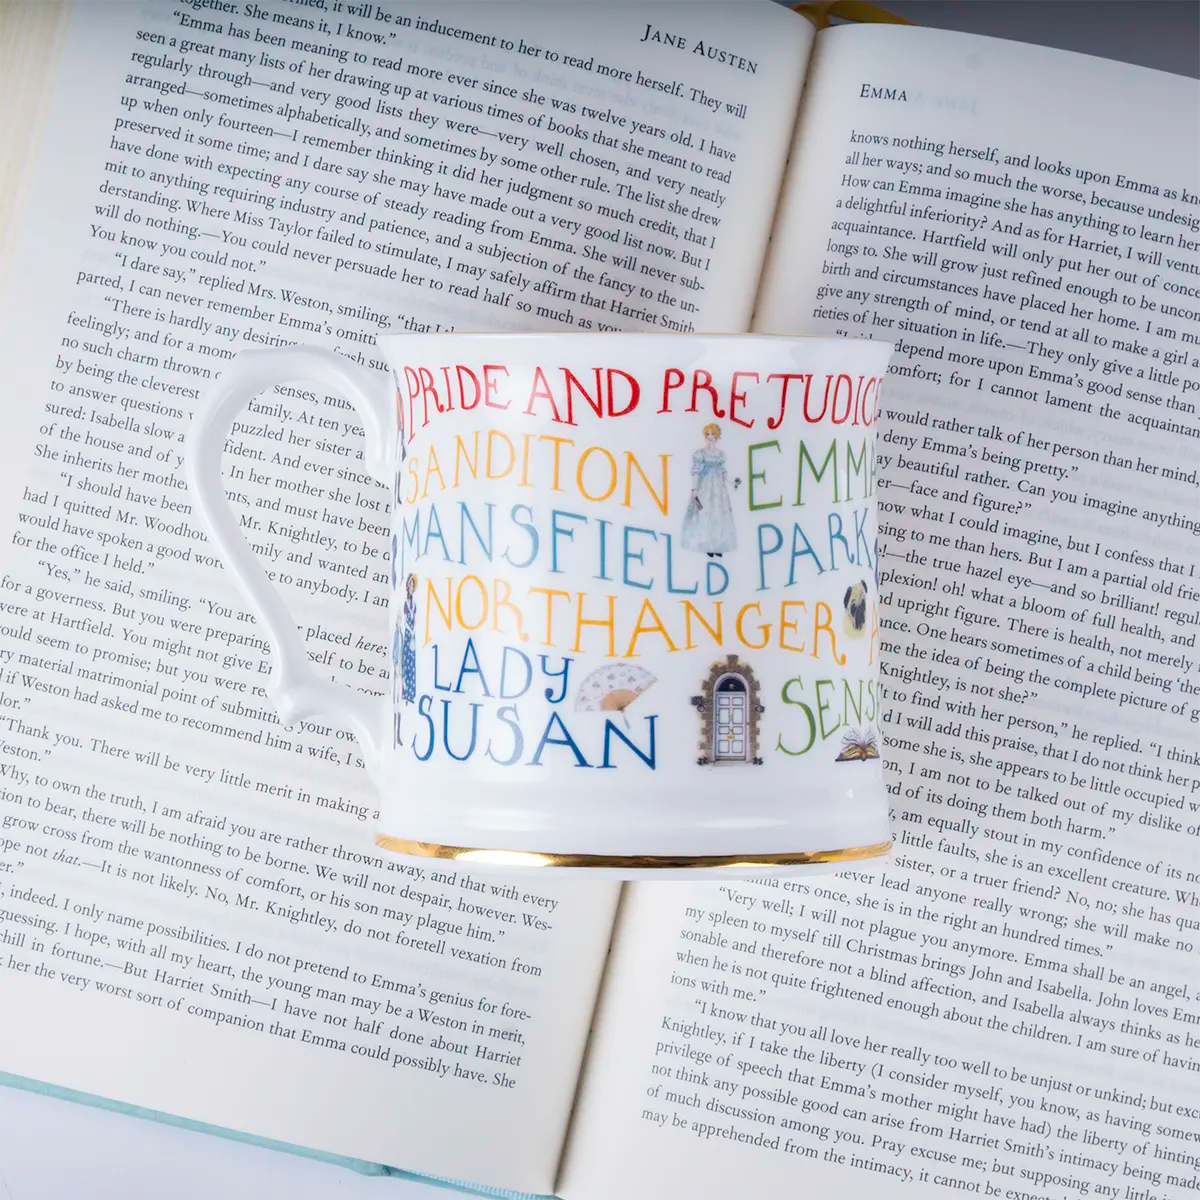 JANE AUSTEN
together. She means it, I know.”
“Emma has been meaning to read more ever since she was twelve years old. I have
seen a great many lists of her drawing up at various times of books that she meant to read
regularly through—and very good lists they were—very well chosen, and very neatly
arranged—sometimes alphabetically, and sometimes by some other rule. The list she drew
up when only fourteen—I remember thinking it did her judgment so much credit, that I
preserved it some time; and I dare say she may have made out a very good list now. But I
have done with expecting any course of steady reading from Emma. She will never sub-
mit to anything requiring industry and patience, and a subjection of the fancy to the un-
derstanding. Where Miss Taylor failed to stimulate, I may safely affirm that Harriet Smith
will do nothing.—You could never persuade her to read half so much as you
You know you could not.”
“I dare say,” replied Mrs. Weston, smiling, “that I
parted, I can never remember Emma’s omitti
“There is hardly any desiring fresh
feelingly; and for a mome senses, mus
no such charm thrown family. At ten yea
by being the cleverest puzzled her sister a
to answer questions fident. And ever since
sured: Isabella slow a In her mother she lost
of the house and of y nts, and must have been
She inherits her mother Mr. Knightley, to be
“I should have been mily and wanted an
had I quitted Mr. Woodhou to anybody. I am
would have spoken a good wor
for the office I held.”
“Yes,” he said, smiling. “You are placed here;
for a governess. But you were preparing rself to be
were at Hartfield. You might not give E
would seem to promise; but you were
ry material matrimonial point of submitting your ow
if Weston had asked me to recommend him a wife, I
lor.”
“Thank you. There will be very little merit in making a
Weston.”
Why, to own the truth, I am afraid you are rather thrown away, and that with every
tion to bear, there will be nothing to be borne. We will not despair, however. Wes-
grow cross from the wantonness of comfort, or his son may plague him.”
ope not that.—It is not likely. No, Mr. Knightley, do not foretell vexation from
indeed. I only name possibilities. I do not pretend to Emma’s genius for fore-
guessing. I hope, with all my heart, the young man may be a Weston in merit,
chill in fortune.—But Harriet Smith—I have not half done about Harriet
her the very worst sort of companion that Emma could possibly have. She
PRIDE AND PREJUDICE
SANDITON EMMA
MANSFIELD PARK
NORTHANGER A
LADY
SUSAN SENS
EMMA
knows nothing herself, and looks upon Emma as kn
all her ways; and so much the worse, because undesig
How can Emma imagine she has anything to learn her
a delightful inferiority? And as for Harriet, I will ventu
acquaintance. Hartfield will only put her out of conce
longs to. She will grow just refined enough to be uncom
birth and circumstances have placed her home. I am mu
give any strength of mind, or tend at all to make a girl a
rieties of her situation in life.—They only give a little po
depend more upon Emma’s good sense than
omfort; for I cannot lament the acquaintan
would rather talk of her person than her mind,
deny Emma’s being pretty.”
ay beautiful rather. Can you imagine anything
er—face and figure?”
now what I could imagine, but I confess that I
sing to me than hers. But I am a partial old frie
!—the true hazel eye—and so brilliant! regul
plexion! oh! what a bloom of full health, and
nd upright figure. There is health, not merely
ance. One hears sometimes of a child being ‘the
me the idea of being the complete picture of g
Knightley, is not she?”
t to find with her person,” he replied. “I think
d I will add this praise, that I do not think her p
some she is, she appears to be little occupied w
on, I am not to be talked out of my dislike o
ad of its doing them both harm.”
, am equally stout in my confidence of its no
s little faults, she is an excellent creature. Wh
sister, or a truer friend? No, no; she has qua
never lead anyone really wrong; she will make no
mma errs once, she is in the right an hundred times.”
“Very well; I will not plague you anymore. Emma shall be an angel,
my spleen to myself till Christmas brings John and Isabella. John loves Em
sonable and therefore not a blind affection, and Isabella always thinks as he
when he is not quite frightened enough about the children. I am sure of havin
ions with me.”
“I know that you all love her really too well to be unjust or unkind; but exc
Knightley, if I take the liberty (I consider myself, you know, as having somew
privilege of speech that Emma’s mother might have had) the liberty of hinting
not think any possible good can arise from Harriet Smith’s intimacy being mad
of much discussion among you. Pray excuse me; but supposing any little i
may be apprehended from the intimacy, it cannot be expec